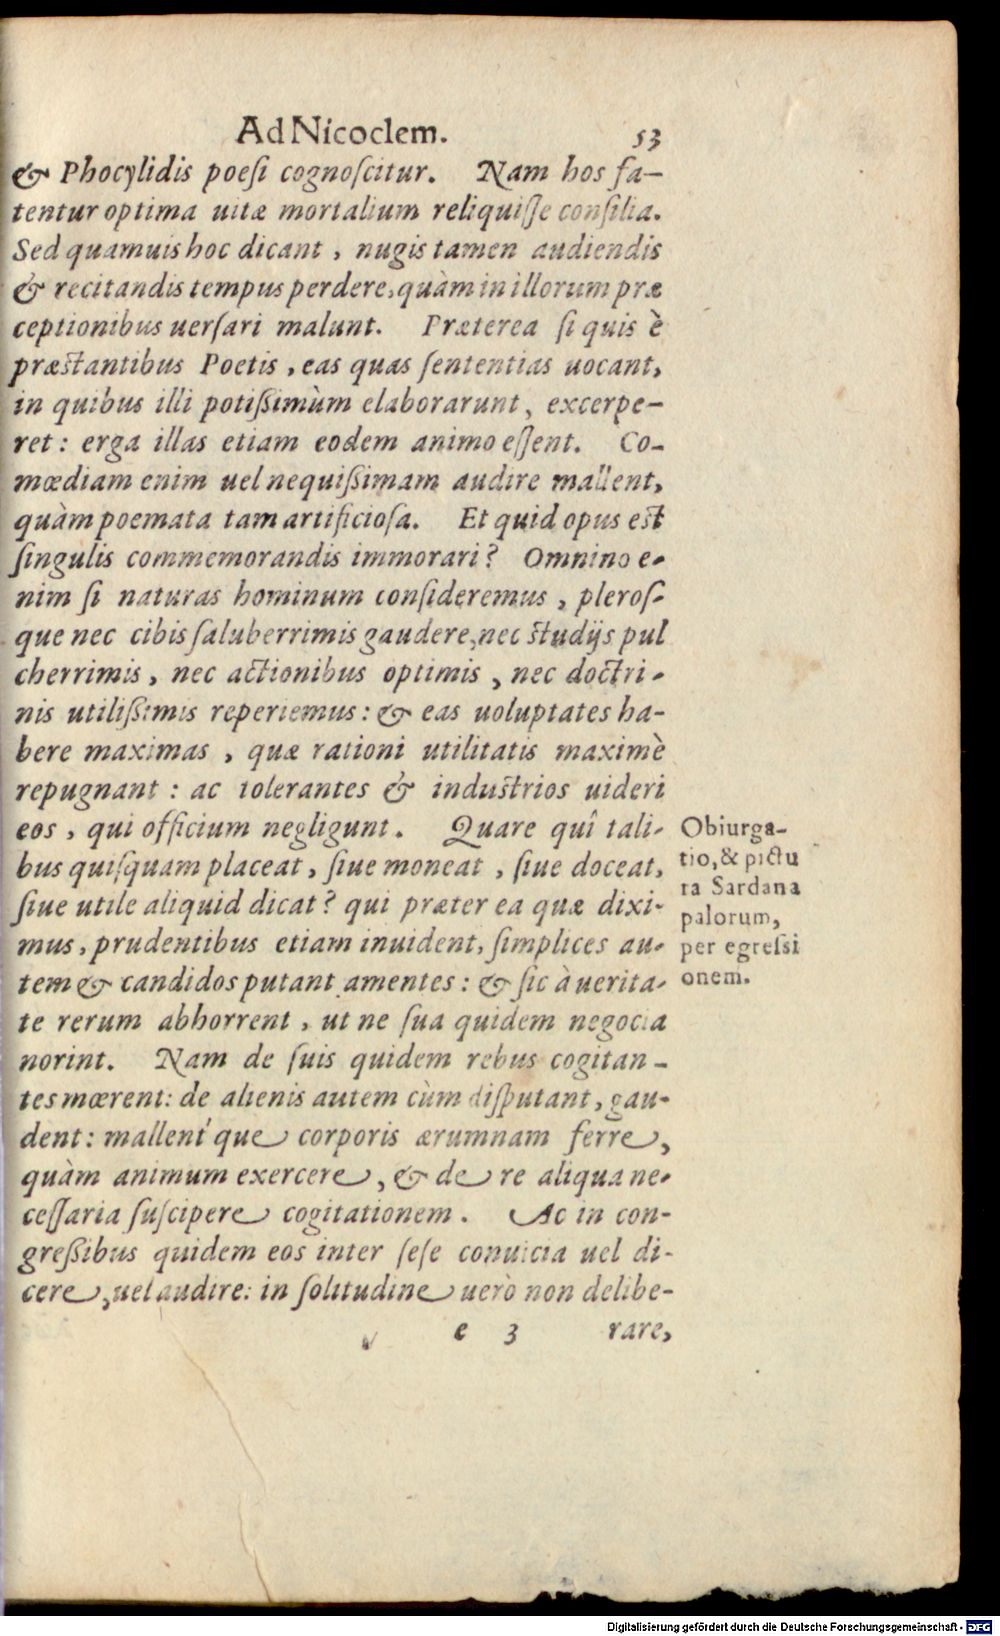 Ad Nicoclem. 53
& Phocylidis poesi cognoscitur. Nam hos fa-
tentur optima uitæ mortalium reliquisse consilia.
Sed quamuis hoc dicant, nugis tamen audiendis
& recitandis tempus perdere, quàm in illorum præ
ceptionibus uersari malunt. Præterea si quis è
præstantibus Poetis, eas quas sententias uocant,
in quibus illi potißimùm elaborarunt, excerpe-
ret: erga illas etiam eodem animo essent. Co-
mœdiam enim uel nequißimam audire mallent,
quàm poemata tam artificiosa. Et quid opus est
singulis commemorandis immorari? Omnino e-
nim si naturas hominum consideremus, pleros-
que nec cibis saluberrimis gaudere, nec studijs pul
cherrimis, nec actionibus optimis, nec doctri-
nis utilißimis reperiemus: & eas uoluptates ha-
bere maximas, quæ rationi utilitatis maximè
repugnant: ac tolerantes & industrios uideri
eos, qui officium negligunt. Quare quî tali-
bus quisquam placeat, siue moneat, siue doceat,
siue utile aliquid dicat? qui præter ea quæ dixi-
mus, prudentibus etiam inuident, simplices au-
tem & candidos putant amentes: & sic à uerita-
te rerum abhorrent, ut ne sua quidem negocia
norint. Nam de suis quidem rebus cogitan-
tes mœrent: de alienis autem cùm disputant, gau-
dent: mallent'que corporis ærumnam ferre,
quàm animum exercere, & de re aliqua ne-
cessaria suscipere cogitationem. Ac in con-
greßibus quidem eos inter sese conuicia uel di-
cere, uel audire: in solitudine uerò non delibe-
e 3 rare,
Obiurga-
tio, & pictu
ra Sardana
palorum,
per egressi
onem.
Digitalisierung gefördert durch die Deutsche Forschungsgemeinschaft - DFG